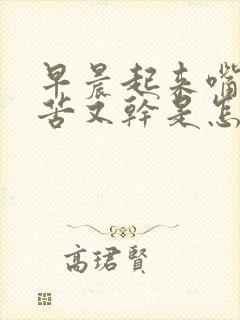 早晨起来嘴
苦又幹是怎
高珺賢